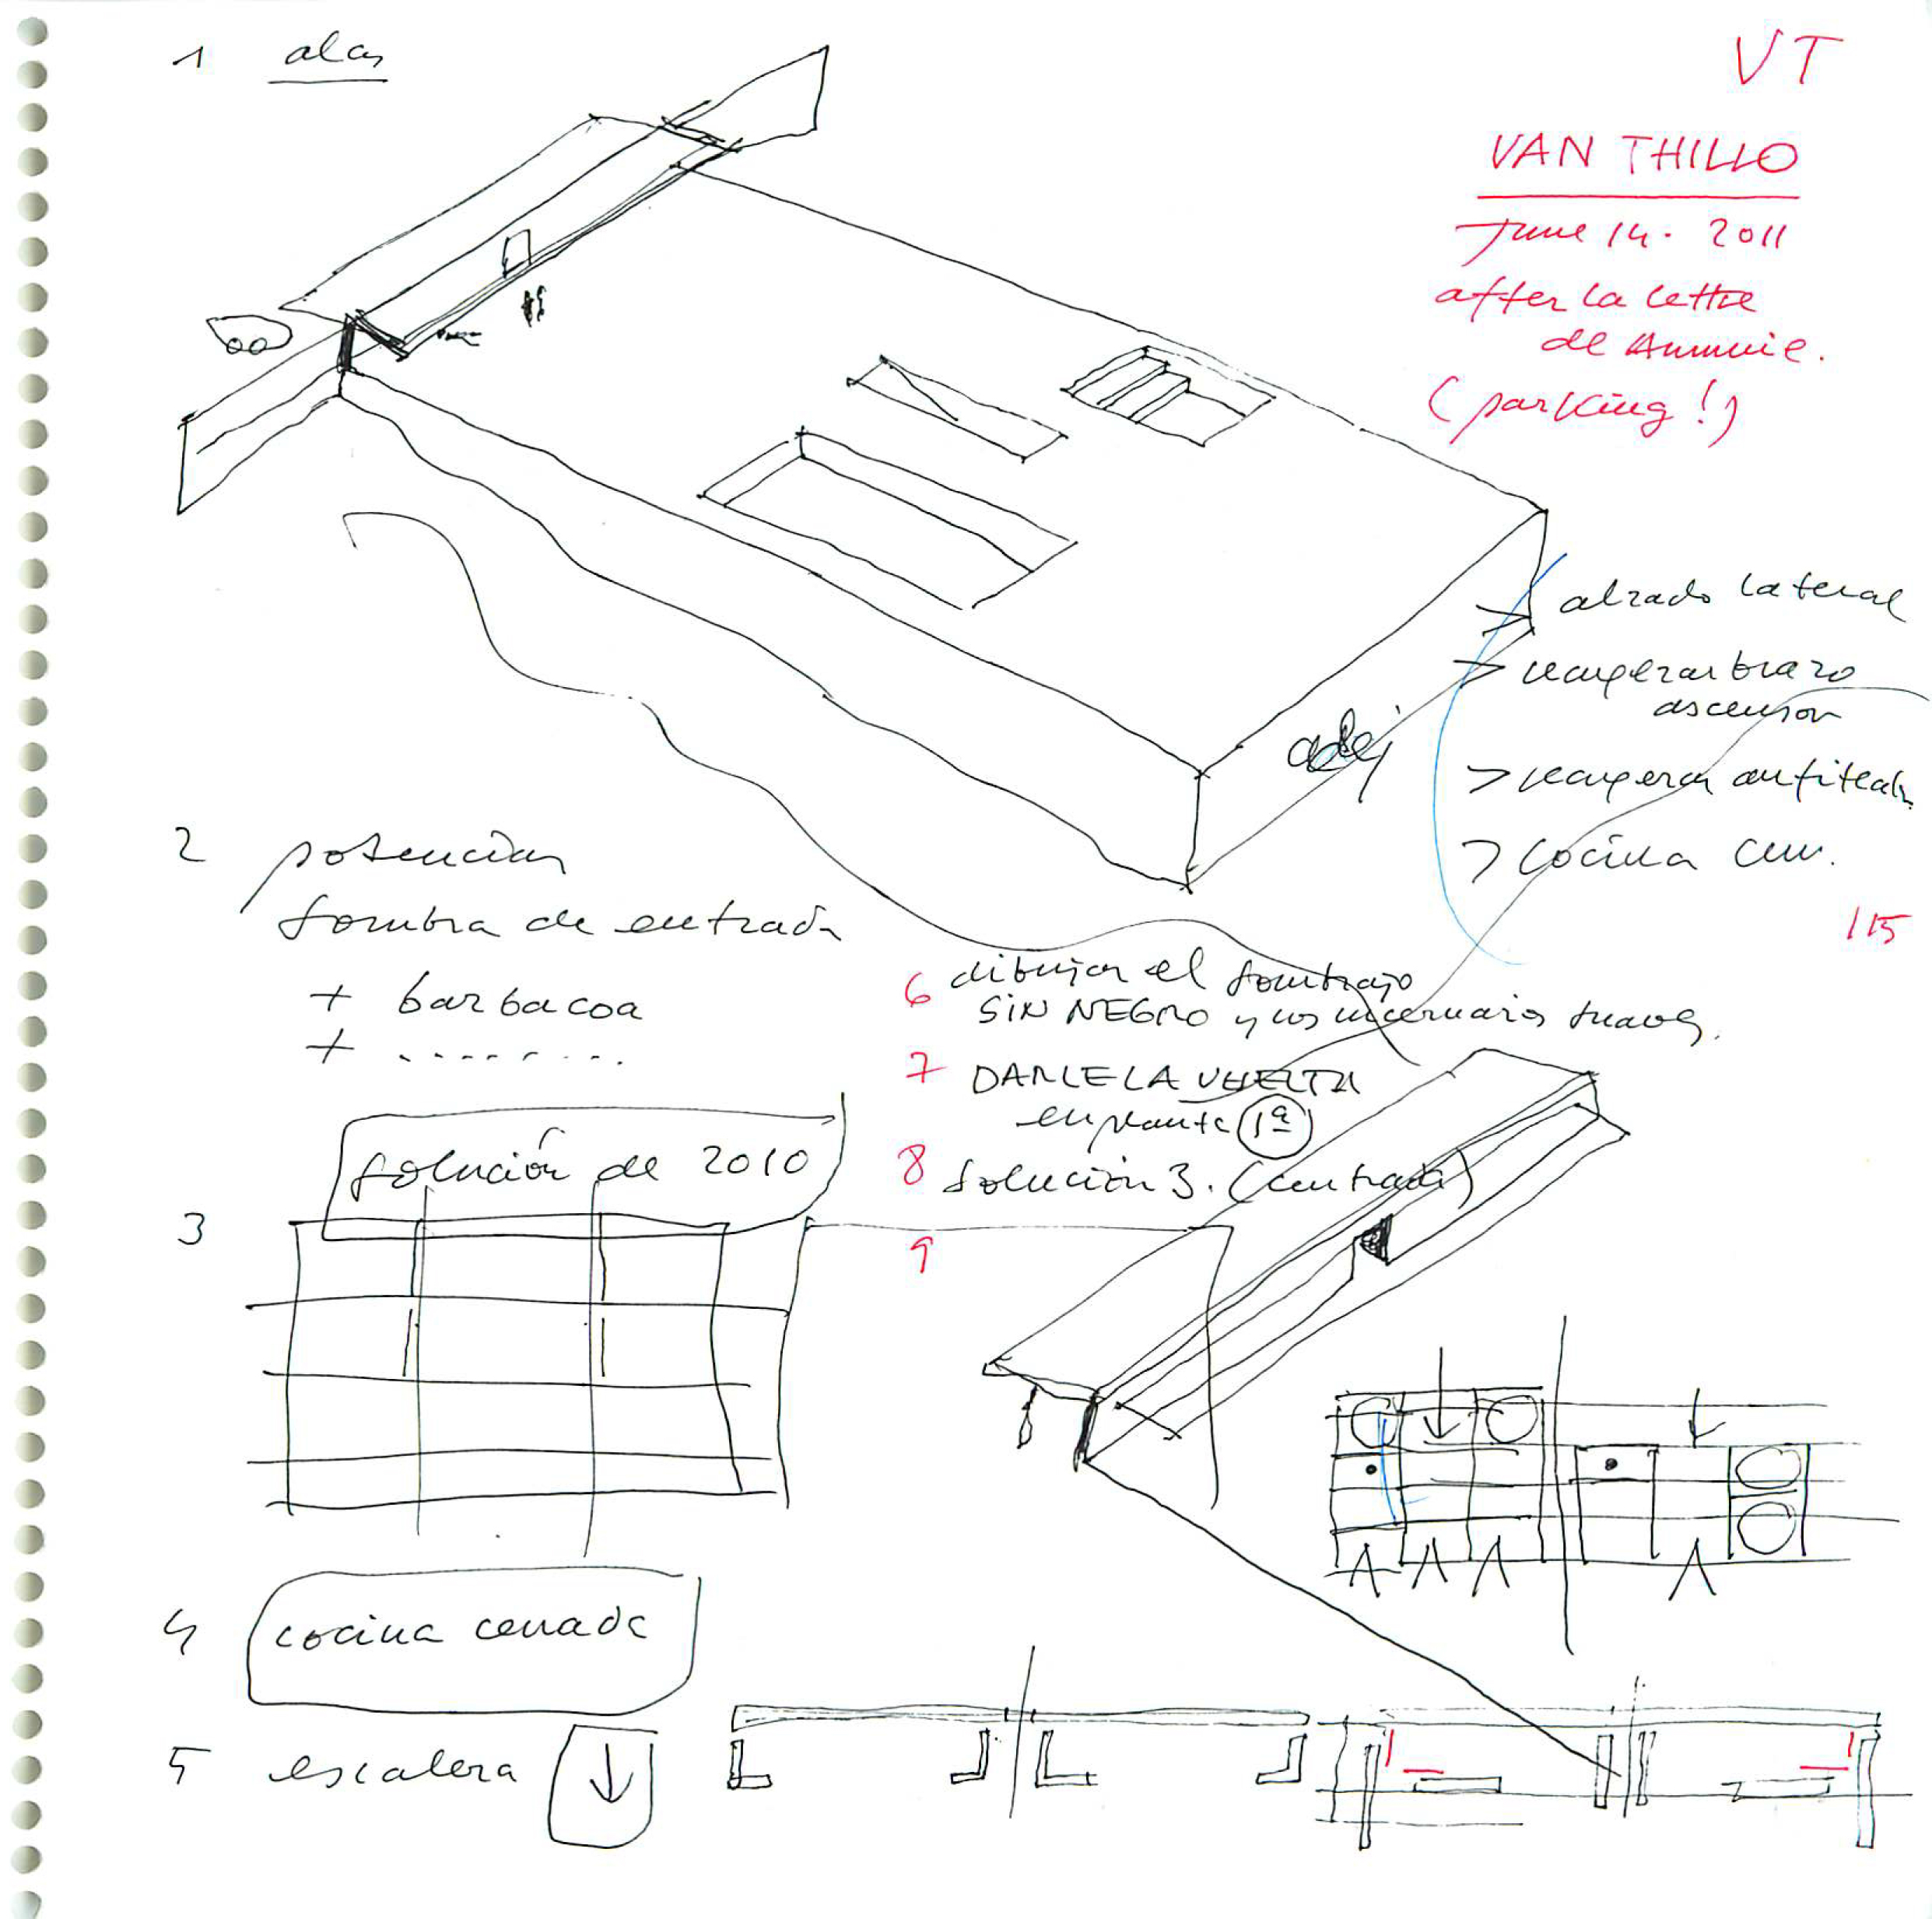 1 alas
VT
VAN THILLO
June 14. 2011
after la lettre
de Annemie.
(parking!)
> alzado lateral
> recuperar brazo
ascensor
> recuperar anfiteatro
> cocina cerr.
115
2 potenciar
sombra de entrada
+ barbacoa
+ ........
6 dibujar el sombrajo
SIN NEGRO y los lucernarios suaves.
7 DARLE LA VUELTA
en planta 1ª
8 solución 3. (centrada)
9
solución de 2010
3
4 cocina cerrada
5 escalera